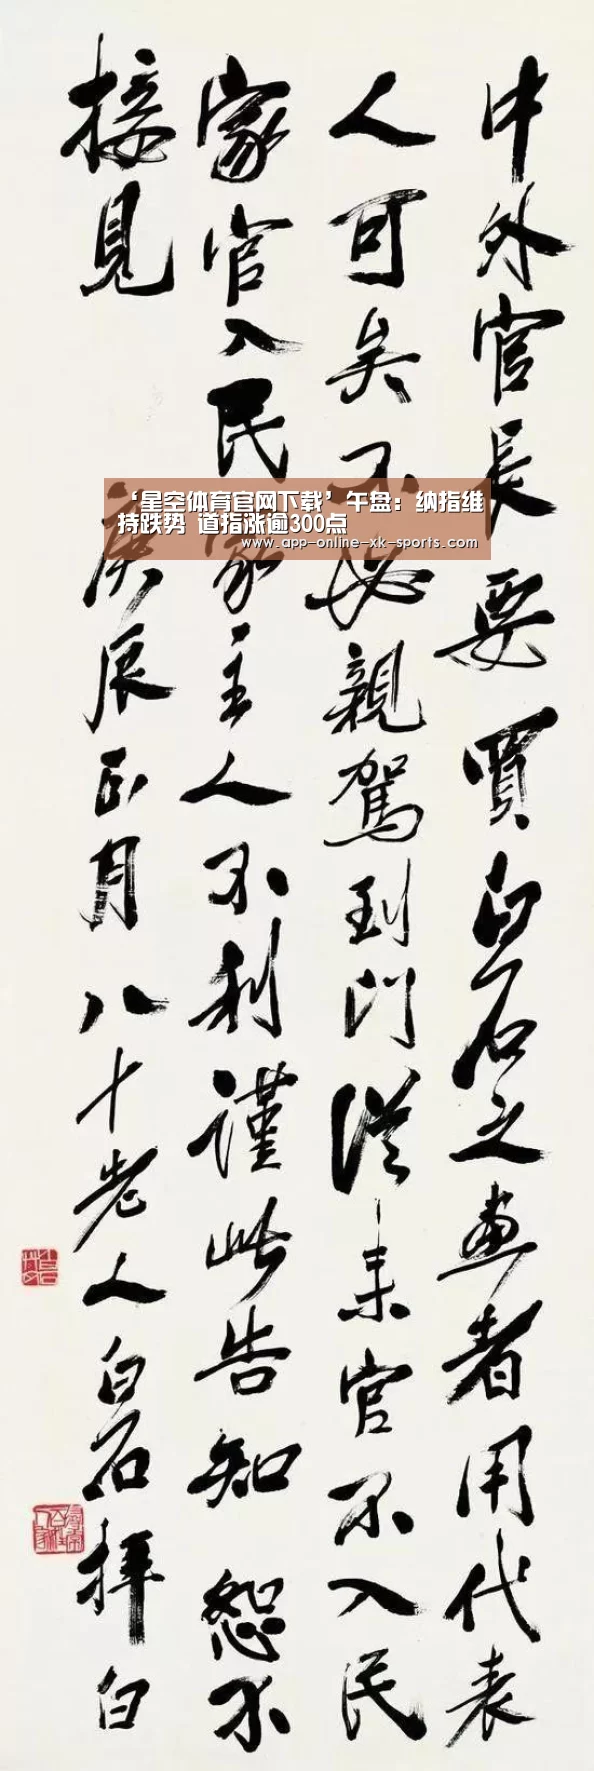 中外官長要買白石之畫者用代表
人可矣不必親駕到門從來官不入民
家官入民家主人不利謹此告知恕不
接見
庚辰正月八十老人白石拜白
‘星空体育官网下载’午盘：纳指维
持跌势 道指涨逾300点
www.app-online-xk-sports.com